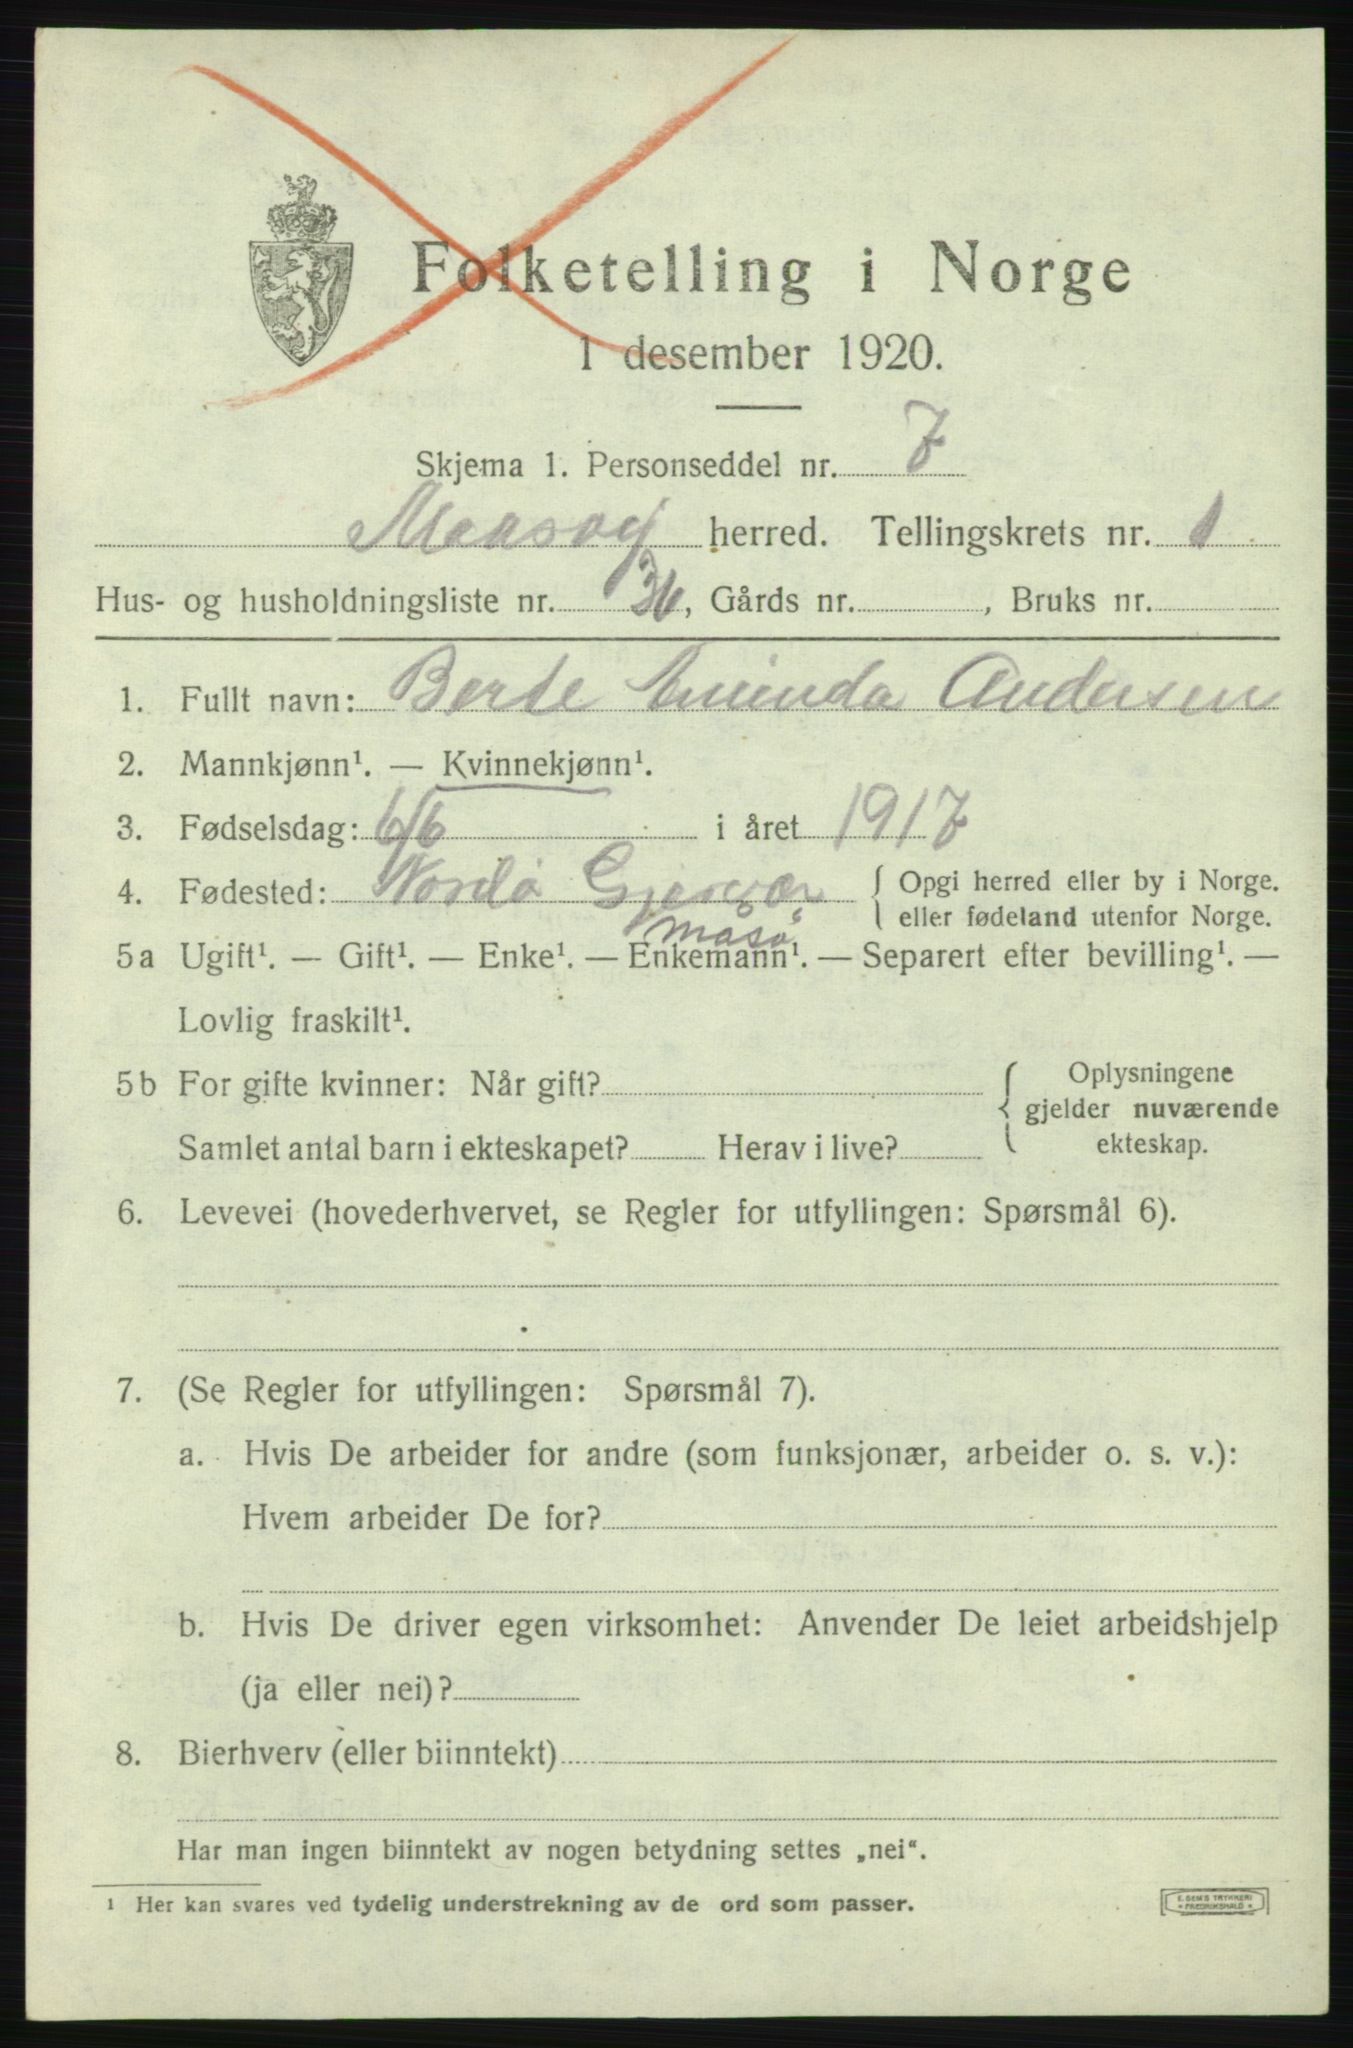 Folketelling i Norge
1 desember 1920.
Skjema 1. Personseddel nr. 7
Maasøy herred. Tellingskrets nr. 1
Hus- og husholdningsliste nr. 36, Gårds nr. , Bruks nr.
1. Fullt navn: Berte Aminda Andersen
2. Mannkjønn¹. — Kvinnekjønn¹.
3. Fødselsdag: 6/6 i året 1917
4. Fødested: Nordø Gjesvær { Opgi herred eller by i Norge.
eller fødeland utenfor Norge.
Måsø
5a Ugift¹. — Gift¹. — Enke¹. — Enkemann¹. — Separert efter bevilling¹. —
Lovlig fraskilt¹.
5b For gifte kvinner: Når gift? { Oplysningene
gjelder nuværende
Samlet antal barn i ekteskapet? Herav i live? ekteskap.
6. Levevei (hovederhvervet, se Regler for utfyllingen: Spørsmål 6).
7. (Se Regler for utfyllingen: Spørsmål 7).
a. Hvis De arbeider for andre (som funksjonær, arbeider o. s. v.):
Hvem arbeider De for?
b. Hvis De driver egen virksomhet: Anvender De leiet arbeidshjelp
(ja eller nei)?
8. Bierhverv (eller biinntekt)
Har man ingen biinntekt av nogen betydning settes „nei".
¹ Her kan svares ved tydelig understrekning av de ord som passer.
E. SEM'S TRYKKERI
* FREDRIKSHALD *